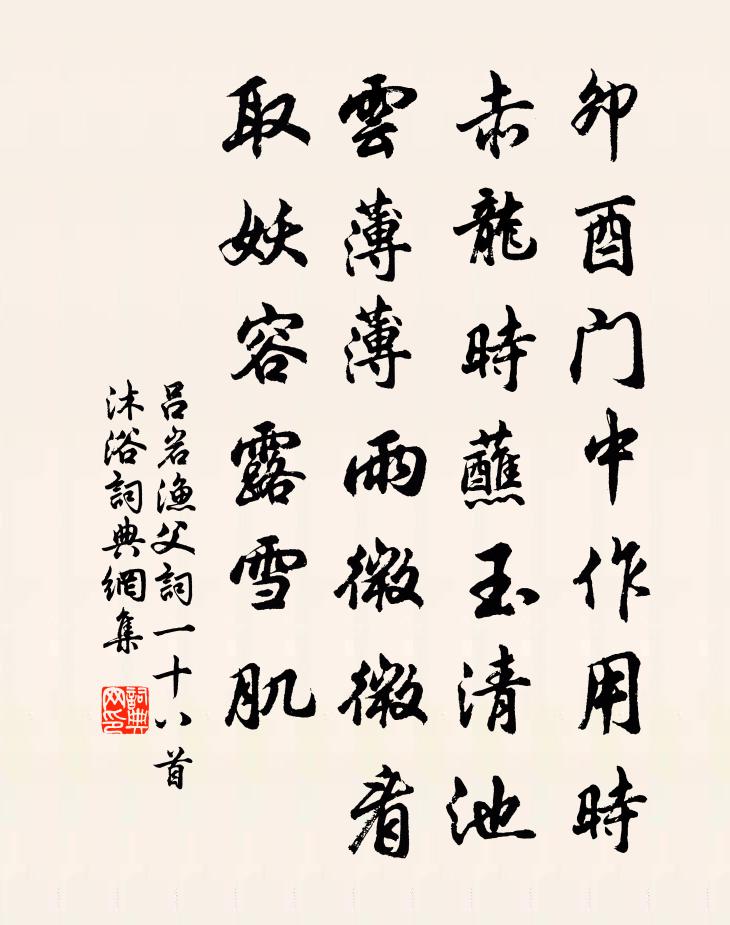 卯酉门中作用時
赤龍時蘸玉清池
雲薄薄雨微微看
取妖容露雪肌
吕岩漁父詞一十八首
沐浴詞典網集
詞典网印